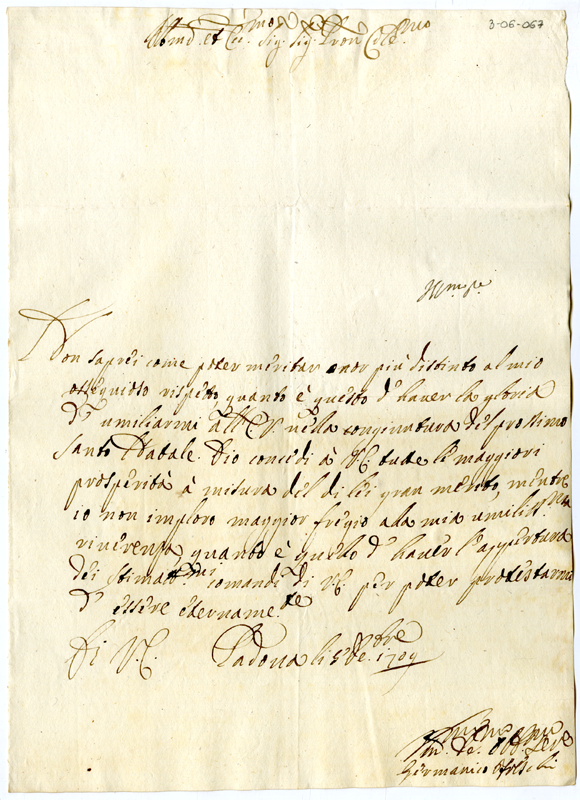 3-06-067
Ill.mo et Ecc.mo Sig. Sig. Pron Coll.mo
Non saprei come poter meritar onor più distinto al mio
ossequioso rispetto quanto è questo d'haver la gloria
d'umiliarmi all'E.V. nella congiuntura del prossimo
Santo Natale. Dio concedi à V.E. tutte le maggiori
prosperità à misura del di lei gran merito, mentre
io non imploro maggior fregio ala mia umiliss.ma
riverenza quando è quelo d'haver l'appertura
dei stimat.mi comandi di V.E. per poter protestarmi
d'essere etername.te
Di V.E. Padova li 5 de.bre 1709
Um.mo De.mo Obb.mo Ser.e
Germanico